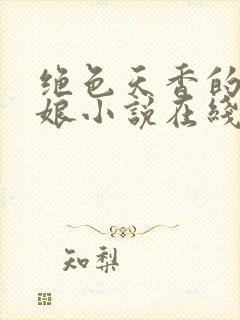 绝色天香的
娘小说在线
知梨